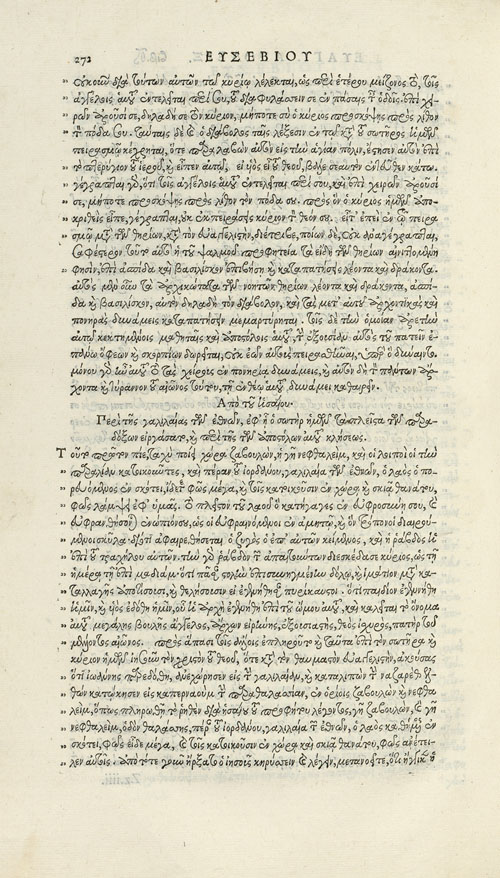 272 ΕΥΣΕΒΙΟΥ
οὐκοῦν διὰ τούτων αὐτῶν τῷ κυρίῳ λέλεκται, ὡς περὶ ἑτέρου μείζονος θεοῦ, τοῖς
ἀγγέλοις αὐτοῦ ἐντελεῖται περὶ σοῦ, τοῦ διαφυλάξειν σε ἐν πάσαις ταῖς ὁδοῖς. ἐπὶ χει-
ρῶν ἀροῦσί σε, δηλαδή σε τὸν κύριον, μήποτε σὺ ὁ κύριος προσκόψῃς πρὸς λίθον
τὸν πόδα σου. ταύταις δὲ καὶ ὁ διάβολος ταῖς λέξεσιν ἐν τῷ κατὰ τοῦ σωτῆρος ἡμῶν
πειρασμῷ κέχρηται, ὅτε παραλαβὼν αὐτὸν εἰς τὴν ἁγίαν πόλιν, ἔστησεν αὐτὸν ἐπὶ
τὸ πτερύγιον τοῦ ἱεροῦ, καὶ εἶπεν αὐτῷ, εἰ υἱὸς εἶ τοῦ θεοῦ, βάλε σεαυτὸν ἐντεῦθεν κάτω.
γέγραπται γὰρ, ὅτι τοῖς ἀγγέλοις αὐτοῦ ἐντελεῖται περὶ σοῦ, καὶ ἐπὶ χειρῶν ἀροῦσί
σε, μήποτε προσκόψῃς πρὸς λίθον τὸν πόδα σου. πρὸς ὃν ὁ κύριος ἡμῶν ἀπο-
κριθεὶς εἶπε, γέγραπται, οὐκ ἐκπειράσεις κύριον τὸν θεόν σου. εἶτ' ἐπεὶ ἐν τῷ πειρα-
σμῷ μετὰ τῶν θηρίων, κατὰ τὸν εὐαγγελιστὴν, διέτριβε, ποίων δὲ, οὐκ ἀναγέγραπται,
σαφέστερον τοῦτο αὐτὸ ἡ τοῦ ψαλμοῦ προφητεία τὰ εἴδη τῶν θηρίων αἰνιττομένη
φησὶν, ἐπὶ ἀσπίδα καὶ βασιλίσκον ἐπιβήσῃ καὶ καταπατήσεις λέοντα καὶ δράκοντα.
αὐτὸς μὲν οὖν τὰ ἀρχικώτατα τῶν νοητῶν θηρίων λέοντα καὶ δράκοντα, ἀσπί-
δα καὶ βασιλίσκον, αὐτὸν δηλαδὴ τὸν διάβολον, καὶ τὰς μετ' αὐτὸν ἀρχοντικὰς καὶ
πονηρὰς δυνάμεις καταπατήσειν μεμαρτύρηται. τοῖς δὲ τὴν ὁμοίαν ἀρετὴν
αὐτῷ κεκτημένοις μαθηταῖς καὶ ἀποστόλοις αὐτοῦ, τὴν ἐξουσίαν αὐτὸς τοῦ πατεῖν ἐ-
πάνω ὄφεων καὶ σκορπίων δωρεῖται, οὐκ ἐῶν αὐτοὺς πειρασθῆναι, ὑπὲρ ὃ δύνανται.
μόνου γὰρ ἦν αὐτοῦ καὶ τὰς χείρους ἐν πονηρίᾳ δυνάμεις, καὶ αὐτὸν δὲ τὸν πάντων ἄρ-
χοντα καὶ τύραννον τοῦ αἰῶνος τούτου, τῇ ἐνθέῳ αὐτοῦ δυνάμει καθαιρεῖν.
Ἀπὸ τοῦ ἡσαίου.
Περὶ τῆς γαλιλαίας τῶν ἐθνῶν, ἐφ' ᾗ ὁ σωτὴρ ἡμῶν τὰ πλεῖστα τῶν παρα-
δόξων εἰργάσατο, καὶ περὶ τῆς τῶν ἀποστόλων αὐτοῦ κλήσεως.
Τοῦτο πρῶτον πίε, ταχὺ ποίει χώρα ζαβουλὼν, ἡ γῆ νεφθαλεὶμ, καὶ οἱ λοιποὶ οἱ τὴν
παραλίαν κατοικοῦντες, καὶ πέραν τοῦ ἰορδάνου, γαλιλαία τῶν ἐθνῶν, ὁ λαὸς ὁ πο-
ρευόμενος ἐν σκότει, ἴδετε φῶς μέγα, καὶ τοῖς κατοικοῦσιν ἐν χώρᾳ καὶ σκιᾷ θανάτου,
φῶς λάμψει ἐφ' ὑμᾶς. τὸ πλεῖστον τοῦ λαοῦ ὃ κατήγαγες ἐν εὐφροσύνῃ σου, καὶ
εὐφρανθήσονται ἐνώπιόν σου, ὡς οἱ εὐφραινόμενοι ἐν ἀμητῷ, καὶ ὃν τρόπον οἱ διαιρού-
μενοι σκῦλα. διότι ἀφαιρεθήσεται ὁ ζυγὸς ὁ ἐπ' αὐτῶν κείμενος, καὶ ἡ ῥάβδος ἡ
ἐπὶ τοῦ τραχήλου αὐτῶν. τὴν γὰρ ῥάβδον τῶν ἀπαιτούντων διεσκέδασε κύριος, ὡς τῇ
ἡμέρᾳ τῇ ἐπὶ μαδιάμ. ὅτι πᾶσαν στολὴν ἐπισυνηγμένην δόλῳ, καὶ ἱμάτιον μετὰ κα-
ταλλαγῆς ἀποτίσουσι, καὶ θελήσουσιν εἰ ἐγενήθησαν πυρίκαυστοι. ὅτι παιδίον ἐγεννήθη
ἡμῖν, καὶ υἱὸς ἐδόθη ἡμῖν, οὗ ἡ ἀρχὴ ἐγενήθη ἐπὶ τοῦ ὤμου αὐτοῦ, καὶ καλεῖται τὸ ὄνομα
αὐτοῦ μεγάλης βουλῆς ἄγγελος, ἄρχων εἰρήνης, ἐξουσιαστὴς, θεὸς ἰσχυρὸς, πατὴρ τοῦ
μέλλοντος αἰῶνος. πρὸς ἅπασι τοῖς ἄλλοις ἐπληροῦτο καὶ ταῦτα ἐπὶ τὸν σωτῆρα καὶ
κύριον ἡμῶν ἰησοῦν τὸν χριστὸν τοῦ θεοῦ, ὅτε κατὰ τὸν θαυμαστὸν εὐαγγελιστὴν, ἀκούσας
ὅτι ἰωάννης παρεδόθη, ἀνεχώρησεν εἰς τὴν γαλιλαίαν, καὶ καταλιπὼν τὴν ναζαρὲθ, ἐλ-
θὼν κατῴκησεν εἰς καπερναοὺμ τὴν παραθαλασσίαν, ἐν ὁρίοις ζαβουλὼν καὶ νεφθα-
λεὶμ, ὅπως πληρωθῇ τὸ ῥηθὲν διὰ ἡσαΐου τοῦ προφήτου λέγοντος, γῆ ζαβουλὼν, καὶ γῆ
νεφθαλεὶμ, ὁδὸν θαλάσσης, πέραν τοῦ ἰορδάνου, γαλιλαία τῶν ἐθνῶν, ὁ λαὸς ὁ καθήμενος ἐν
σκότει, φῶς εἶδε μέγα, καὶ τοῖς κατοικοῦσιν ἐν χώρᾳ καὶ σκιᾷ θανάτου, φῶς ἀνέτει-
λεν αὐτοῖς. ἀπὸ τότε γοῦν ἤρξατο ὁ ἰησοῦς κηρύσσειν καὶ λέγειν, μετανοεῖτε, ὅτι ἤγγικεν ἡ